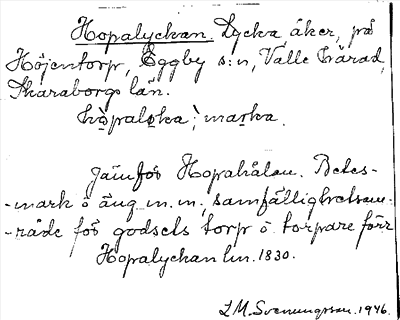 Hopalyckan. Lycka åker, på
Höjentorp, Eggby s:n, Valle härad,
Skaraborgs län.
håpaløka, marka.
Jämför Hopahålan. Betes-
-mark o äng m.m., samfällighetsom-
-råde för godsets torp o torpare förr
Hopalyckan lm. 1830.
L.M. Svenungsson. 1946.